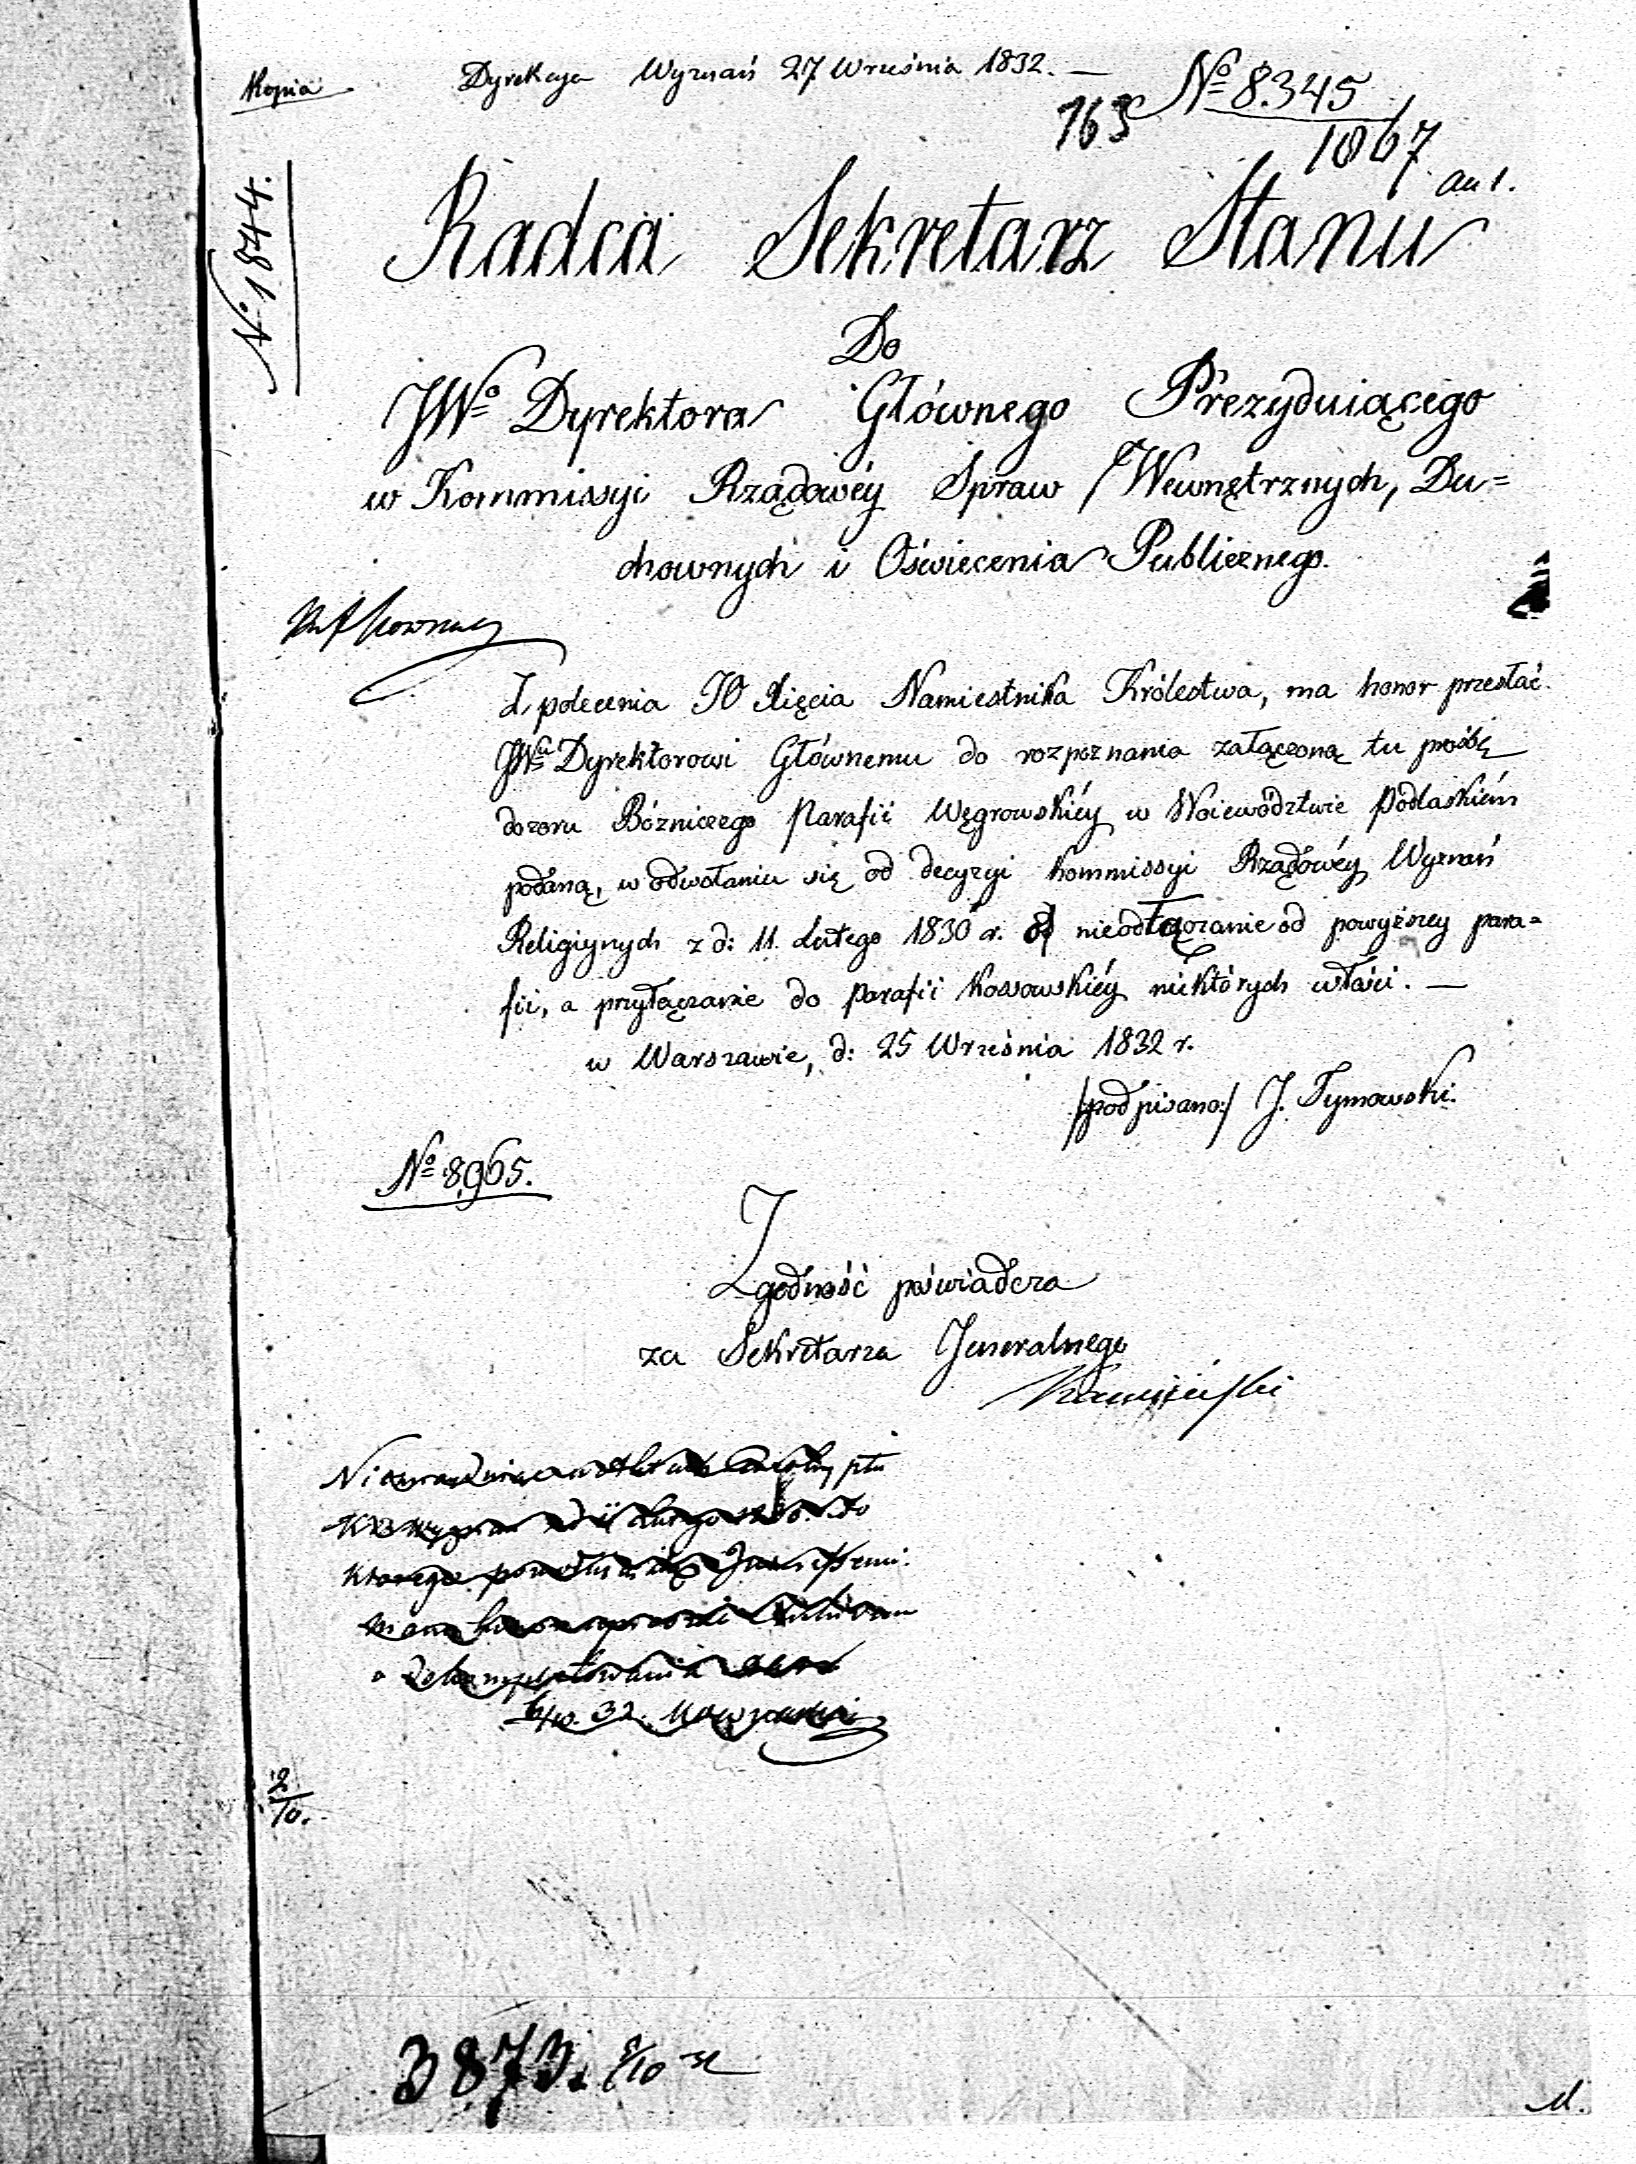 Kopia
Dyrekcya Wyznań 27 Września 1832. —
No 8.345
163
1067
an 1.
No 1844.
Radca Sekretarz Stanu
Do
JWo Dyrektora Głównego Prezyduiącego
w Kommissyi Rządowéy Spraw Wewnętrznych, Du=
chownych i Oświecenia Publicznego.
Z polecenia JO Xięcia Namiestnika Królestwa, ma honor przesłać
JWu Dyrektorowi Głównemu do rozpoznania załączoną tu prośbę
dozoru Bóżniczego Parafii Węgrowskiéy w Woiewództwie Podlaskiém
podaną, w odwołaniu się od decyzyi Kommissyi Rządowéy Wyznań
Religiynych z d: 11. Lutego 1830 r. nieodłączanie od powyższey para=
fii, a przyłączanie do Parafii Kossowskiéy niektórych włości. —
w Warszawie, d: 25 Września 1832 r.
/podpisano:/ J. Tymowski.
No 8965.
Zgodność poświadcza
za Sekretarza Jeneralnego
32.
2/10.
3873. 8/10
M.